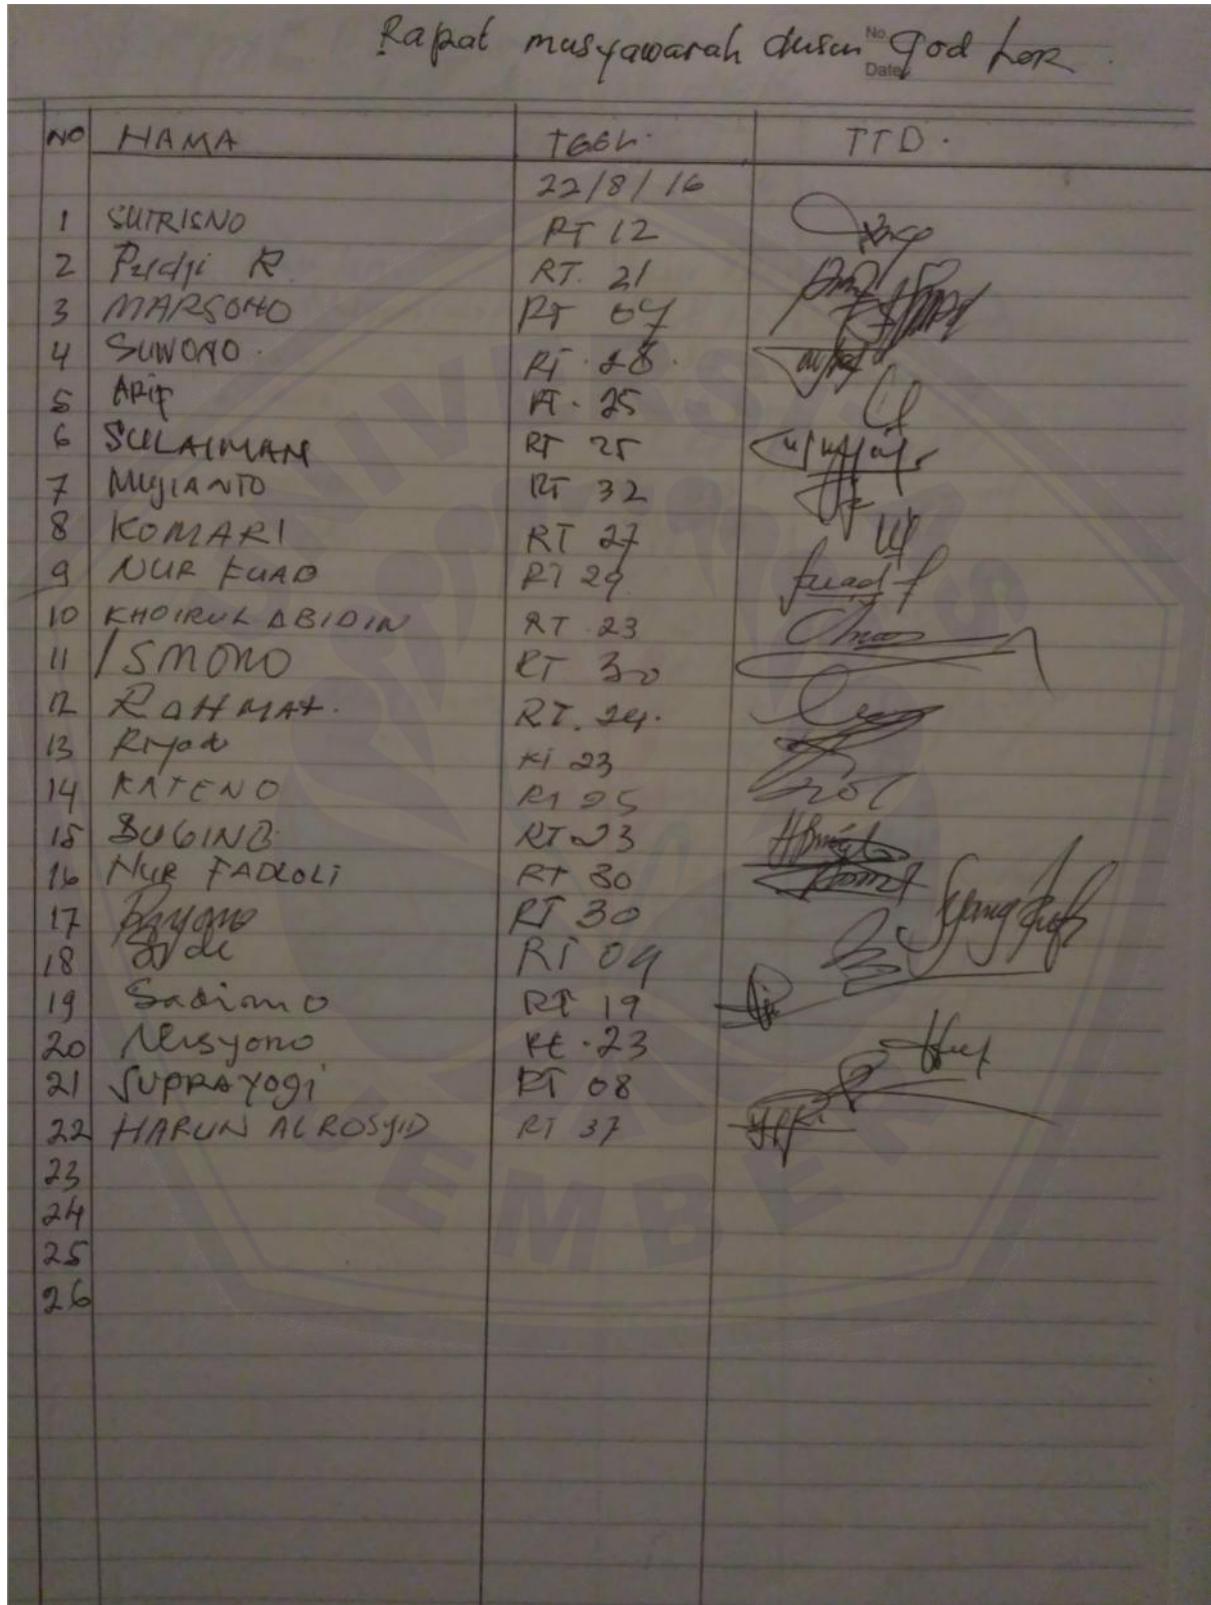 Rapat musyawarah dusun
No.
Date
NO NAMA TGGL. TTD.
22/8/16
1 SUTRISNO RT 12
2 Pudji R. RT. 21
3 MARSONO RT 07
4 SUWONO. RT. 28.
5 ARIF RT. 25
6 SULAIMAN RT 25
7 MUJIANTO RT 32
8 KOMARI RT 27
9 NUR FUAD RT 29 fuad f
10 KHOIRUL ABIDIN RT. 23
11 ISMONO RT 30
12 ROHMAT. RT. 24.
13 Riyadi RT 23
14 KATENO RT 25
15 SUGINO RT 23
16 NUR FADLOLI RT 30
17 RT 30
18 RT 09
19 Sadimo RT 19
20 RT. 23
21 SUPRAYOGI RT 08
22 HARUN AL ROSYID RT 37
23
24
25
26
UNIVERSITAS
JEMBER